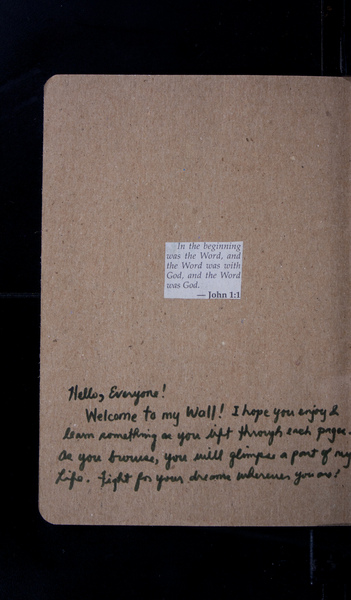 In the beginning
was the Word, and
the Word was with
God, and the Word
was God.
— John 1:1
Hello, Everyone!
Welcome to my Wall! I hope you enjoy &
learn something as you lift through each page.
As you browse, you will glimpse a part of my
Life. Fight for your dreams wherever you are!